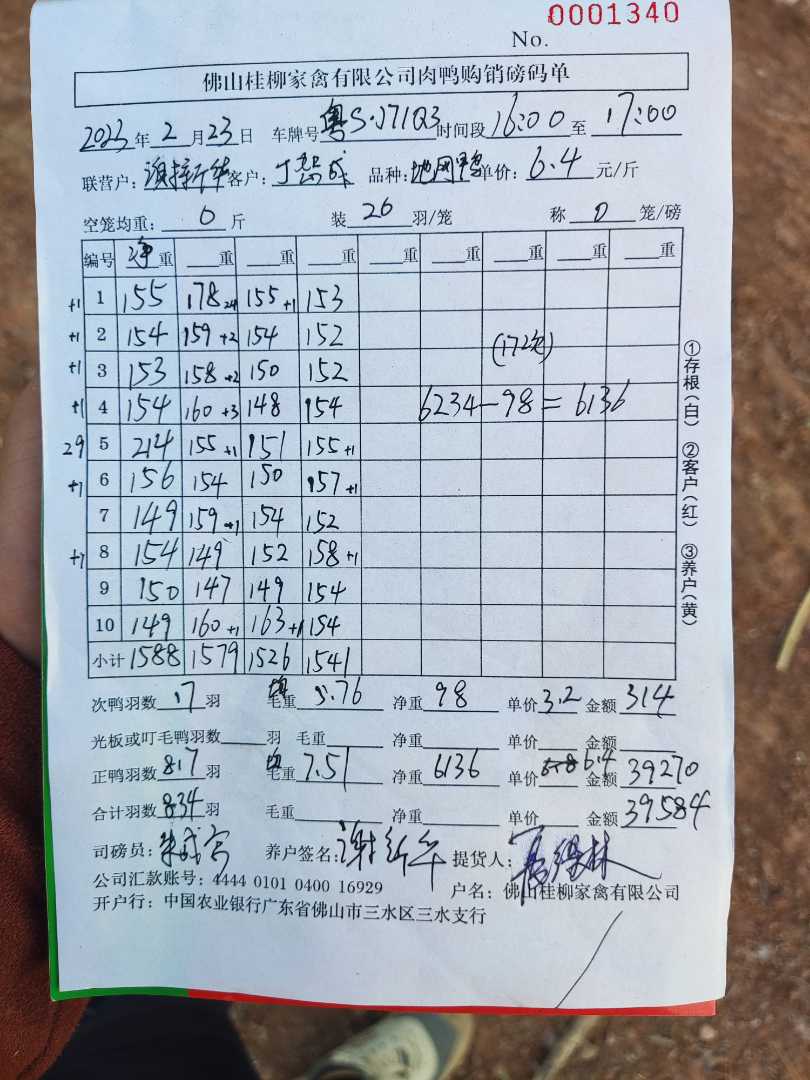 0001340
No.
佛山桂柳家禽有限公司肉鸭购销磅码单
2023年2月23日 车牌号 粤S·J71Q3 时间段 16:00 至 17:00
联营户: 客户: 品种: 单价: 6.4 元/斤
空笼均重: 0 斤 装 20 羽/笼 称 0 笼/磅
编号 净重 重 重 重 重 重 重 重
+1 1 155 178 155 +1 153
+1 2 154 159 +2 154 152
+1 3 153 158 +2 150 152
+1 4 154 160 +3 148 154
29 5 214 155 +1 151 155 +1
+1 6 156 154 150 157 +1
7 149 159 +1 154 152
8 154 149 152 158 +1
9 150 147 149 154
10 149 160 +1 163 154
小计 1588 1579 1526 1541
6234-98=6136
①存根(白) ②客户(红) ③养户(黄)
次鸭羽数 17 羽 均重 5.76 净重 98 单价 3.2 金额 314
光板或叮毛鸭羽数 羽 毛重 净重 单价 金额
正鸭羽数 817 羽 均重 7.51 净重 6136 单价 6.4 金额 39270
合计羽数 834 羽 毛重 净重 单价 金额 39584
司磅员: 养户签名: 提货人:
公司汇款账号: 4444 0101 0400 16929 户名: 佛山桂柳家禽有限公司
开户行: 中国农业银行广东省佛山市三水区三水支行